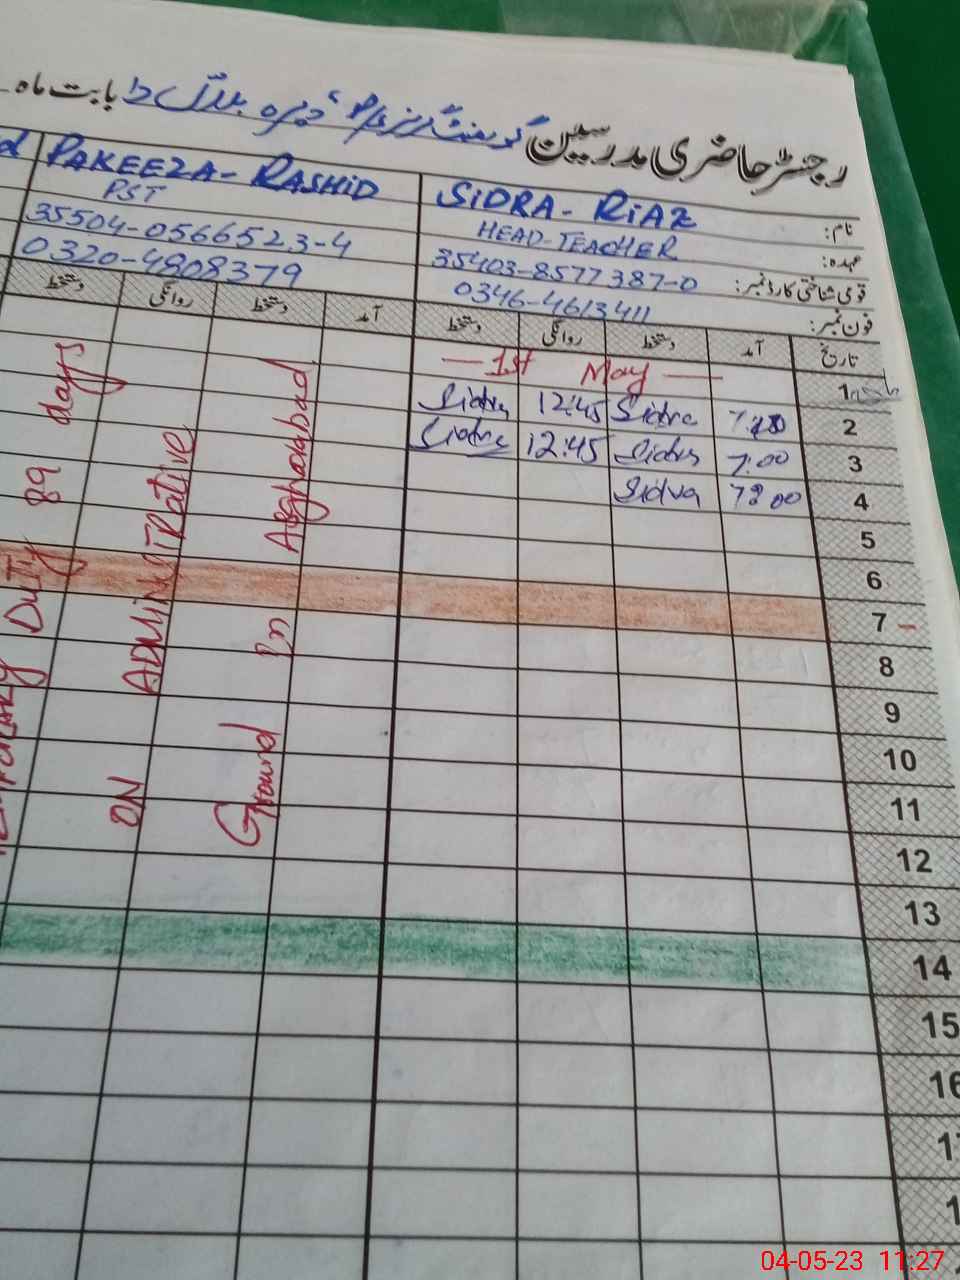 رجسٹر حاضری مدرسین گورنمنٹ گرلز بابت ماہ
نام: SIDRA-RIAZ PAKEEZA-RASHID d
عہدہ: HEAD-TEACHER PST
قومی شناختی کارڈ نمبر: 35403-8577387-0 35504-0566523-4
فون نمبر: 0346-4613411 0320-4808379
تاریخ آمد دستخط روانگی دستخط آمد دستخط روانگی دستخط
1 — 1st May —
2 Sidra 12:45 Sidra
3 7:00 Sidra 12:45 Sidra
4 Sidra
5
6
7 –
8
9
10
11
12
13
14
15
16
Duty 89 days
ON ADMINISTRATIVE
Ground in Asgharabad
04-05-23 11:27